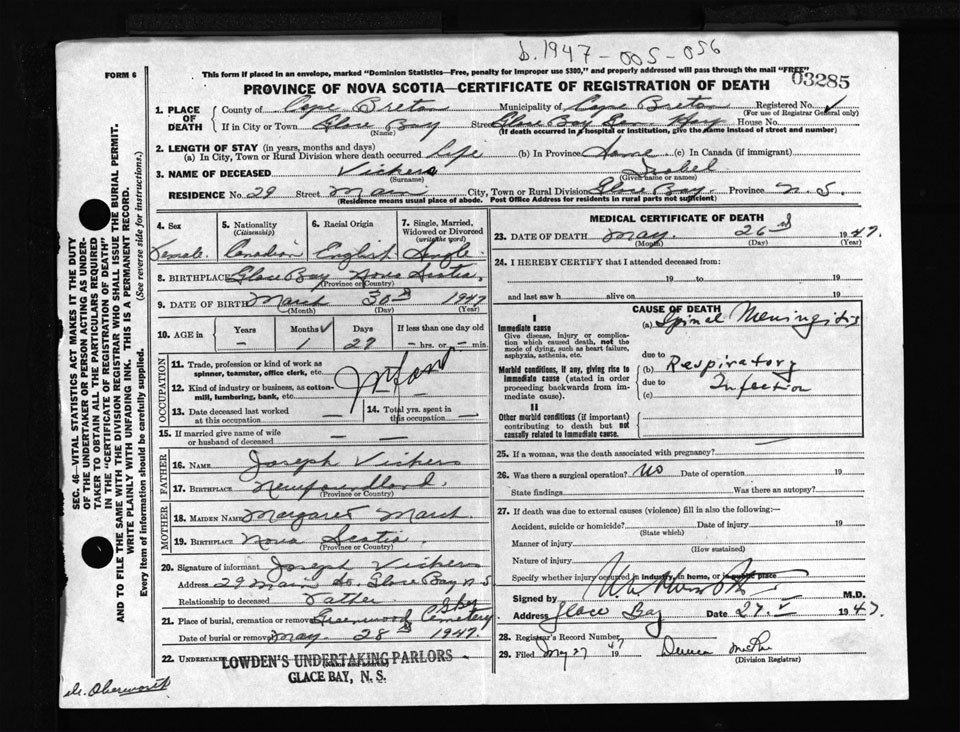 D.1947-005-056
FORM 6
This form if placed in an envelope, marked "Dominion Statistics—Free, penalty for improper use $300," and properly addressed will pass through the mail "FREE"
03285
PROVINCE OF NOVA SCOTIA—CERTIFICATE OF REGISTRATION OF DEATH
1. PLACE OF DEATH
County of Cape Breton Municipality of Cape Breton Registered No.
(For use of Registrar General only)
If in City or Town Glace Bay Street Glace Bay Gen Hosp House No.
(Name) (If death occurred in a hospital or institution, give the name instead of street and number)
2. LENGTH OF STAY (in years, months and days)
(a) In City, Town or Rural Division where death occurred Life (b) In Province Same (c) In Canada (if immigrant)
3. NAME OF DECEASED Vickers Isabel
(Surname) (Given name or names)
RESIDENCE No. 29 Street Main City, Town or Rural Division Glace Bay. Province N.S.
(Residence means usual place of abode. Post Office Address for residents in rural parts not sufficient)
4. Sex 5. Nationality (Citizenship) 6. Racial Origin 7. Single, Married, Widowed or Divorced (write the word)
Female. Canadian English Single
8. BIRTHPLACE Glace Bay Nova Scotia
(Province or Country)
9. DATE OF BIRTH March 30th 1947
(Month) (Day) (Year)
10. AGE in Years Months Days If less than one day old
– 1 27 – hrs. or – min.
OCCUPATION
11. Trade, profession or kind of work as spinner, teamster, office clerk, etc.
Infant
12. Kind of industry or business, as cotton-mill, lumbering, bank, etc.
13. Date deceased last worked at this occupation — 14. Total yrs. spent in this occupation —
15. If married give name of wife or husband of deceased — —
FATHER
16. NAME Joseph Vickers
17. BIRTHPLACE Newfoundland.
(Province or Country)
MOTHER
18. MAIDEN NAME Margaret March
19. BIRTHPLACE Nova Scotia.
(Province or Country)
20. Signature of informant Joseph Vickers
Address 29 Main St. Glace Bay N.S
Relationship to deceased Father
21. Place of burial, cremation or removal Greenwood Cemetery
Date of burial or removal May 28th 1947.
22. UNDERTAKER LOWDEN'S UNDERTAKING PARLORS
GLACE BAY, N. S.
MEDICAL CERTIFICATE OF DEATH
23. DATE OF DEATH May. 26 1947.
(Month) (Day) (Year)
24. I HEREBY CERTIFY that I attended deceased from:
19 to 19
and last saw h alive on 19
CAUSE OF DEATH
I
Immediate cause
Give disease, injury or complication which caused death, not the mode of dying, such as heart failure, asphyxia, asthenia, etc.
(a) Spinal Meningitis
due to
Morbid conditions, if any, giving rise to immediate cause (stated in order proceeding backwards from immediate cause).
(b) Respiratory
due to Infection
(c)
II
Other morbid conditions (if important) contributing to death but not causally related to immediate cause.
25. If a woman, was the death associated with pregnancy?
26. Was there a surgical operation? No Date of operation 19
State findings Was there an autopsy?
27. If death was due to external causes (violence) fill in also the following:
Accident, suicide or homicide? Date of injury 19
(State which)
Manner of injury
(How sustained)
Nature of injury
Specify whether injury occurred in industry, in home, or in public place
Signed by M.D.
Address Glace Bay Date 27 V 1947
28. Registrar's Record Number
29. Filed May 27 1947
(Division Registrar)
SEC. 46—VITAL STATISTICS ACT MAKES IT THE DUTY OF THE UNDERTAKER OR PERSON ACTING AS UNDERTAKER TO OBTAIN ALL THE PARTICULARS REQUIRED IN THE "CERTIFICATE OF REGISTRATION OF DEATH"
AND TO FILE THE SAME WITH THE DIVISION REGISTRAR WHO SHALL ISSUE THE BURIAL PERMIT.
WRITE PLAINLY WITH UNFADING INK. THIS IS A PERMANENT RECORD.
Every item of information should be carefully supplied. (See reverse side for instructions.)